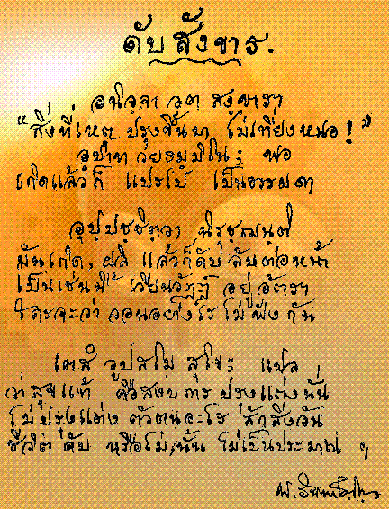 ดับสังขาร.
อนิจฺจา วต สงฺขารา
"สิ่งที่เหตุ ปรุงขึ้นมา ไม่เที่ยงหนอ!"
อุปฺปาท วยธมฺมิโน; พอ
เกิดแล้วก็ แปรไป เป็นธรรมดา
อุปฺปชฺชิตฺวา นิรุชฺฌนฺติ
มันเกิด, ผลิ แล้วก็ดับ ลับต่อหน้า
เป็นเช่นนี้ เวียนวัฏฏ์ อยู่อัตรา
ใครจะว่า วอนอย่างไร ไม่ฟังกัน
เตสํ วูปสโม สุโข: แปล
ว่าสุขแท้ คือสงบ การปรุงแต่งนั่น
ไม่ปรุงแต่ง ตัวตนอะไร สักสิ่งอัน
ชีวิต ดับ หรือไม่,นั้น ไม่เป็นประมาณ ฯ